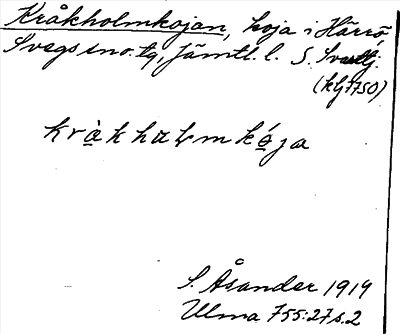 Kråkholmkojan, koja i Härrö,
Svegs sno. tg, Jämtl. l. S.
(klj 7750)
kràkhaɫmkǿja
S. Åsander 1919
Ulma 755:27 s. 2